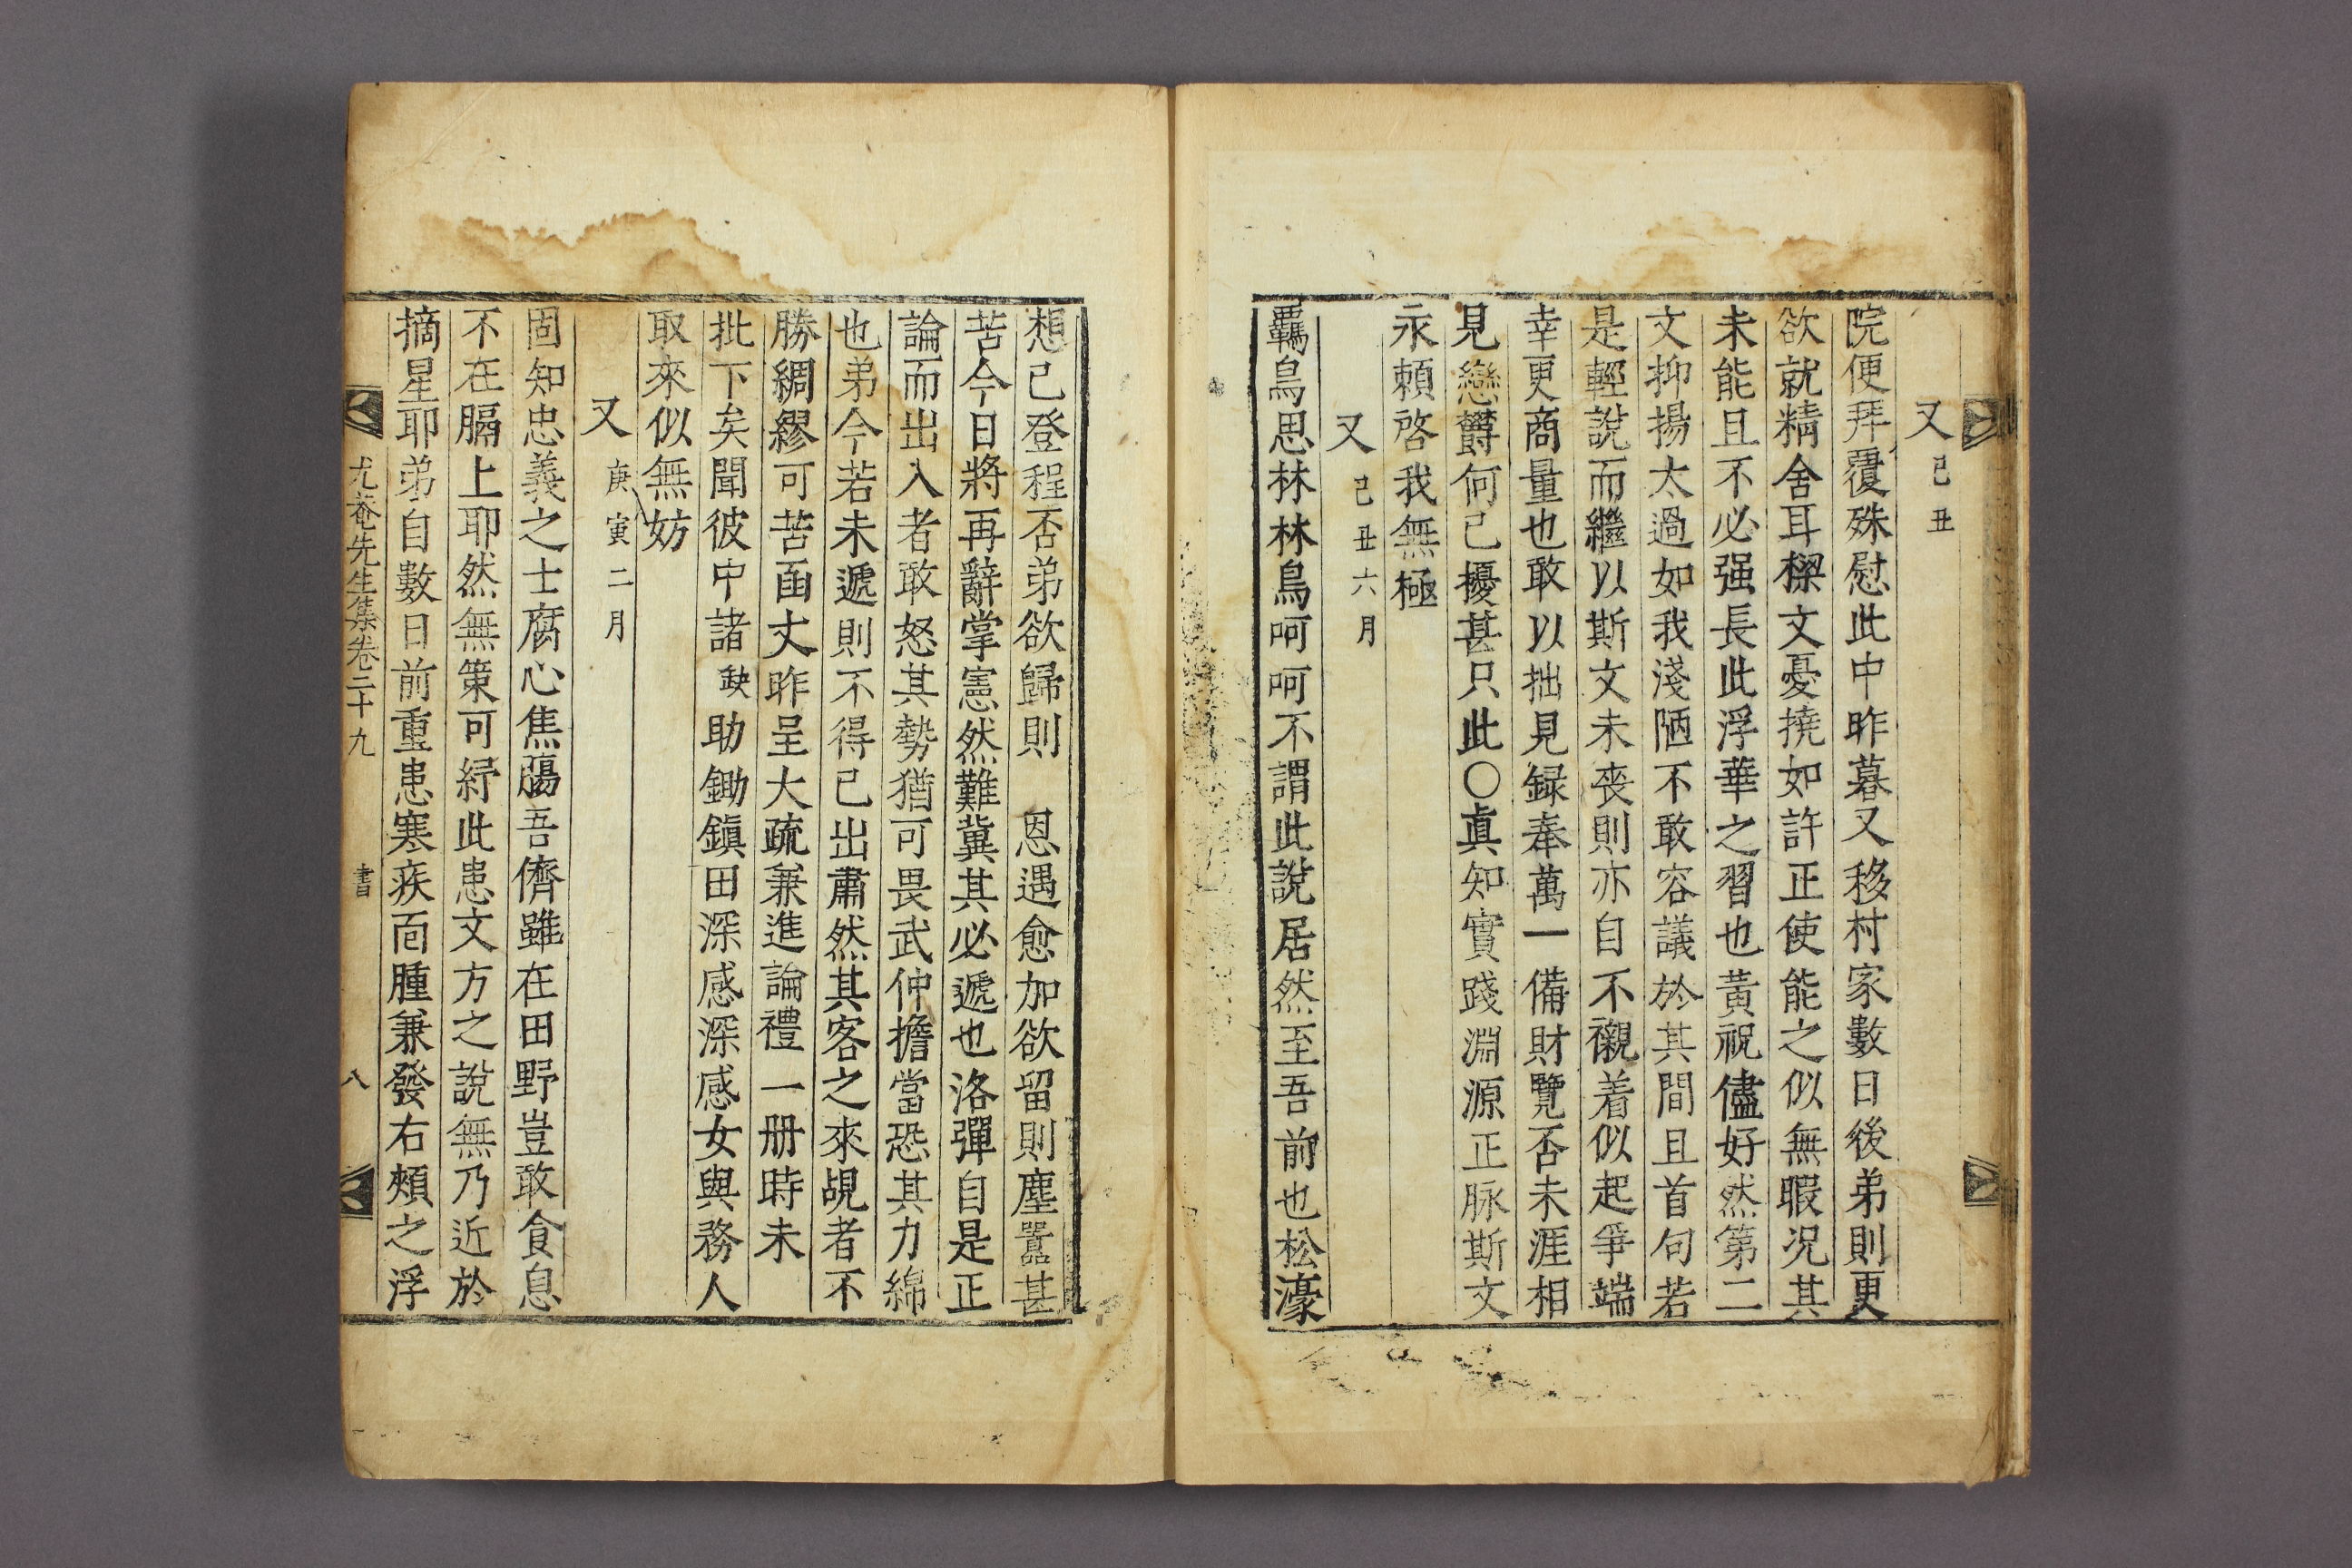 又 己丑
院便拜覆殊慰此中昨暮又移村家數日後弟則更
欲就精舍耳樑文憂撓如許正使能之似無暇況其
未能且不必强長此浮華之習也黃祝儘好然第二
文抑揚太過如我淺陋不敢容議於其間且首句若
是輕說而繼以斯文未喪則亦自不襯着似起爭端
幸更商量也敢以拙見録奉萬一備財覽否未涯相
見戀欝何已擾甚只此○眞知實踐淵源正脉斯文
永賴啓我無極
又 己丑六月
羈鳥思林林鳥呵呵不謂此說居然至吾前也松濠
想已登程否弟欲歸則 恩遇愈加欲留則塵嚚甚
苦今日將再辭掌憲然難兾其必遞也洛彈自是正
論而出入者敢怒其勢猶可畏武仲擔當恐其力綿
也弟今若未遞則不得已出肅然其客之來覘者不
勝綢繆可苦函丈昨呈大疏兼進論禮一册時未
批下矣聞彼中諸 缺 助鋤鎭田深感深感女與務人
取來似無妨
又 庚寅二月
固知忠義之士腐心焦膓吾儕雖在田野豈敢食息
不在膈上耶然無策可紓此患文方之說無乃近於
摘星耶弟自數日前重患寒疾面腫兼發右頰之浮
尤菴先生集卷二十九 書 八